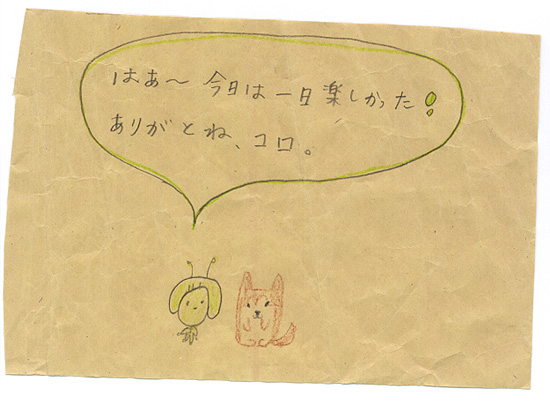 はぁ〜 今日は一日楽しかった!
ありがとね、コロ。